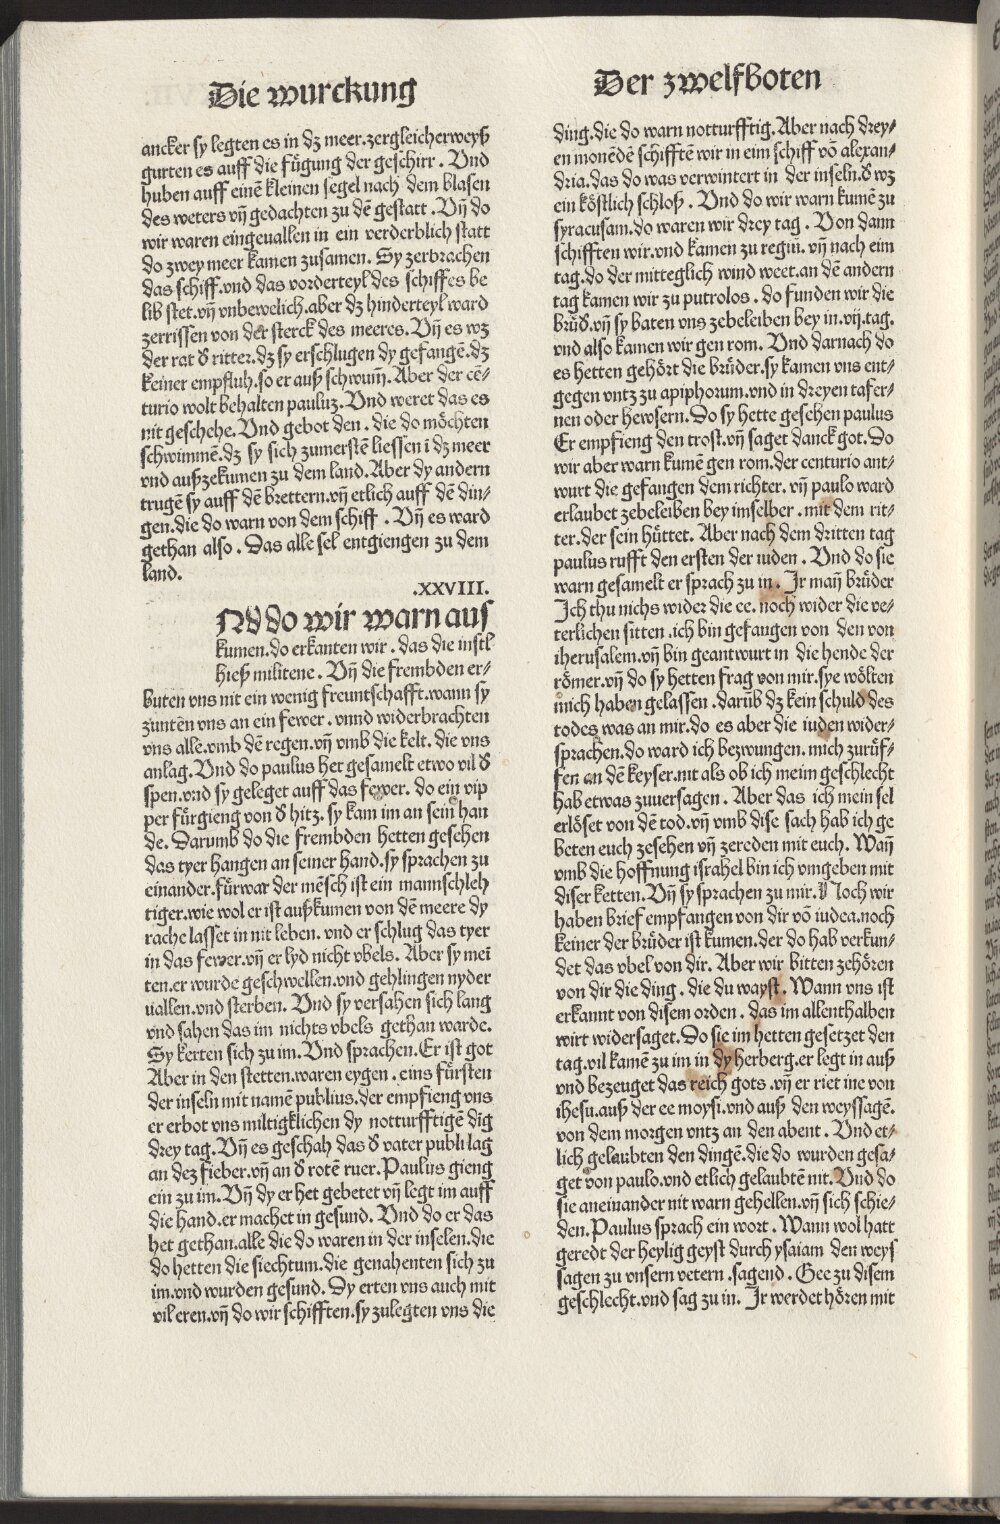 Die wurckung
ancker sy legten es in dʒ meer.zergleicherweyß
gurten es auff die fügung der geschirr . Vnd
huben auff einē kleinen segel nach dem blasen
des weters vñ gedachten zu dē gestatt . Vñ do
wir waren eingeuallen in ein verderblich statt
do zwey meer kamen zusamen. Sy zerbrachen
das schiff.vnd das vorderteyl des schiffes be
lib stet.vñ vnbewelich.aber dʒ hinderteyl ward
zerrissen von der sterck des meeres. Vñ es wʒ
der rat d̕ ritter.dʒ sy erschlugen dy gefangē.dʒ
keiner empfluh.so er auß schwum̄. Aber der cē-
turio wolt behalten pauluʒ. Vnd weret das es
nit geschehe. Vnd gebot den . die do möchten
schwimmē.dʒ sy sich zumerstē liessen ī dʒ meer
vnd außzekumen zu dem land. Aber dy andern
trugē sy auff dē brettern.vñ etlich auff dē din-
gen.die do warn von dem schiff . Vñ es ward
gethan also . Das alle sel entgiengen zu dem
land.
.XXVIII.
Nd do wir warn aus
kumen.do erkanten wir . das die insel
hieß militene . Vñ die frembden er-
buten vns nit ein wenig freuntschafft.wann sy
zuntēn vns an ein fewer . vnnd widerbrachten
vns alle.vmb dē regen.vñ vmb die kelt. die vns
anlag. Vnd do paulus het gesamelt etwo vil d̕
spen.vnd sy geleget auff das fewer. do ein vip
per fürgieng von d̕ hitz. sy kam im an sein han
de. Darumb do die frembden hetten gesehen
das tyer hangen an seiner hand.sy sprachen zu
einander.fürwar der mēsch ist ein mannschleh
tiger.wie wol er ist außkumen von dē meere dy
rache lasset in nit leben. vnd er schlug das tyer
in das fewer.vñ er lyd nicht vbels. Aber sy mei
ten.er wurde geschwellen.vnd gehlingen nyder
uallen.vnd sterben. Vnd sy versahen sich lang
vnd sahen das im nichts vbels gethan warde.
Sy kerten sich zu im. Vnd sprachen. Er ist got
Aber in den stetten.waren eygen . eins fürsten
der inseln mit namē publius.der empfieng vns
er erbot vns miltigklichen dy notturfftigē dīg
drey tag. Vñ es geschah das d̕ vater publi lag
an dez fieber.vñ an d̕ rotē ruer. Paulus gieng
ein zu im. Vñ dy er het gebetet vñ legt im auff
die hand.er machet in gesund. Vnd do er das
het gethan.alle die do waren in der inselen.die
do hetten die siechtum.die genahenten sich zu
im.vnd wurden gesund. Dy erten vns auch mit
vil eren.vñ do wir schifften.sy zulegten vns die
Der zwelfboten
ding.die do warn notturfftig. Aber nach drey-
en monēdē schifftē wir in eim schiff vō alexan-
dria.das do was verwintert in der inseln.d̕ wʒ
ein köstlich schloß . Vnd do wir warn kumē zu
syracusam.do waren wir drey tag . Von dann
schifften wir.vnd kamen zu regiū. vñ nach eim
tag.do der mitteglich wind weet.an dē andern
tag kamen wir zu putrolos . do funden wir die
brüd̕.vñ sy baten vns zebeleiben bey in.vij.tag.
vnd also kamen wir gen rom. Vnd darnach do
es hetten gehört die brüder.sy kamen vns ent-
gegen vntz zu apiphorum.vnd in dreyen tafer-
nen oder hewsern. Do sy hette gesehen paulus
Er empfieng den trost.vñ saget danck got. Do
wir aber warn kumē gen rom.der centurio ant-
wurt die gefangen dem richter. vñ paulo ward
erlaubet zebeleiben bey imselber . mit dem rit-
ter.der sein hüttet. Aber nach dem dritten tag
paulus rufft den ersten der iuden . Vnd do sie
warn gesamelt er sprach zu in . Ir man̄ brüder
Ich thu nichs wider die ee. noch wider die ve-
terlichen sitten .ich bin gefangen von den von
iherusalem.vñ bin geantwurt in die hende der
römer.vñ do sy hetten frag von mir.sye wölten
mich haben gelassen .darūb dʒ kein schuld des
todes was an mir.do es aber die iuden wider-
sprachen.do ward ich bezwungen. mich zurüf-
fen an dē keyser.nit als ob ich meim geschlecht
hab etwas zuuersagen . Aber das ich mein sel
erlöset von dē tod.vñ vmb dise sach hab ich ge
beten euch zesehen vñ zereden mit euch. Wan̄
vmb die hoffnung israhel bin ich vmgeben mit
diser ketten. Vñ sy sprachen zu mir. Noch wir
haben brief empfangen von dir vō iudea.noch
keiner der brüder ist kumen.der do hab verkun-
det das vbel von dir. Aber wir bitten zehören
von dir die ding . die du wayst. Wann vns ist
erkannt von disem orden . das im allenthalben
wirt widersaget. Do sie im hetten gesetzet den
tag.vil kamē zu im in dy herberg.er legt in auß
vnd bezeuget das reich gots .vñ er riet ine von
ihesu.auß der ee moysi.vnd auß den weyssagē.
von dem morgen vntz an den abent . Vnd et-
lich gelaubten den dingē.die do wurden gesa-
get von paulo.vnd etlich gelaubtē nit. Vnd do
sie aneinander nit warn gehellen.vñ sich schie-
den. Paulus sprach ein wort . Wann wol hatt
geredt der heylig geyst durch ysaiam den weys
sagen zu vnsern vetern .sagend . Gee zu disem
geschlecht.vnd sag zu in. Ir werdet hören mit